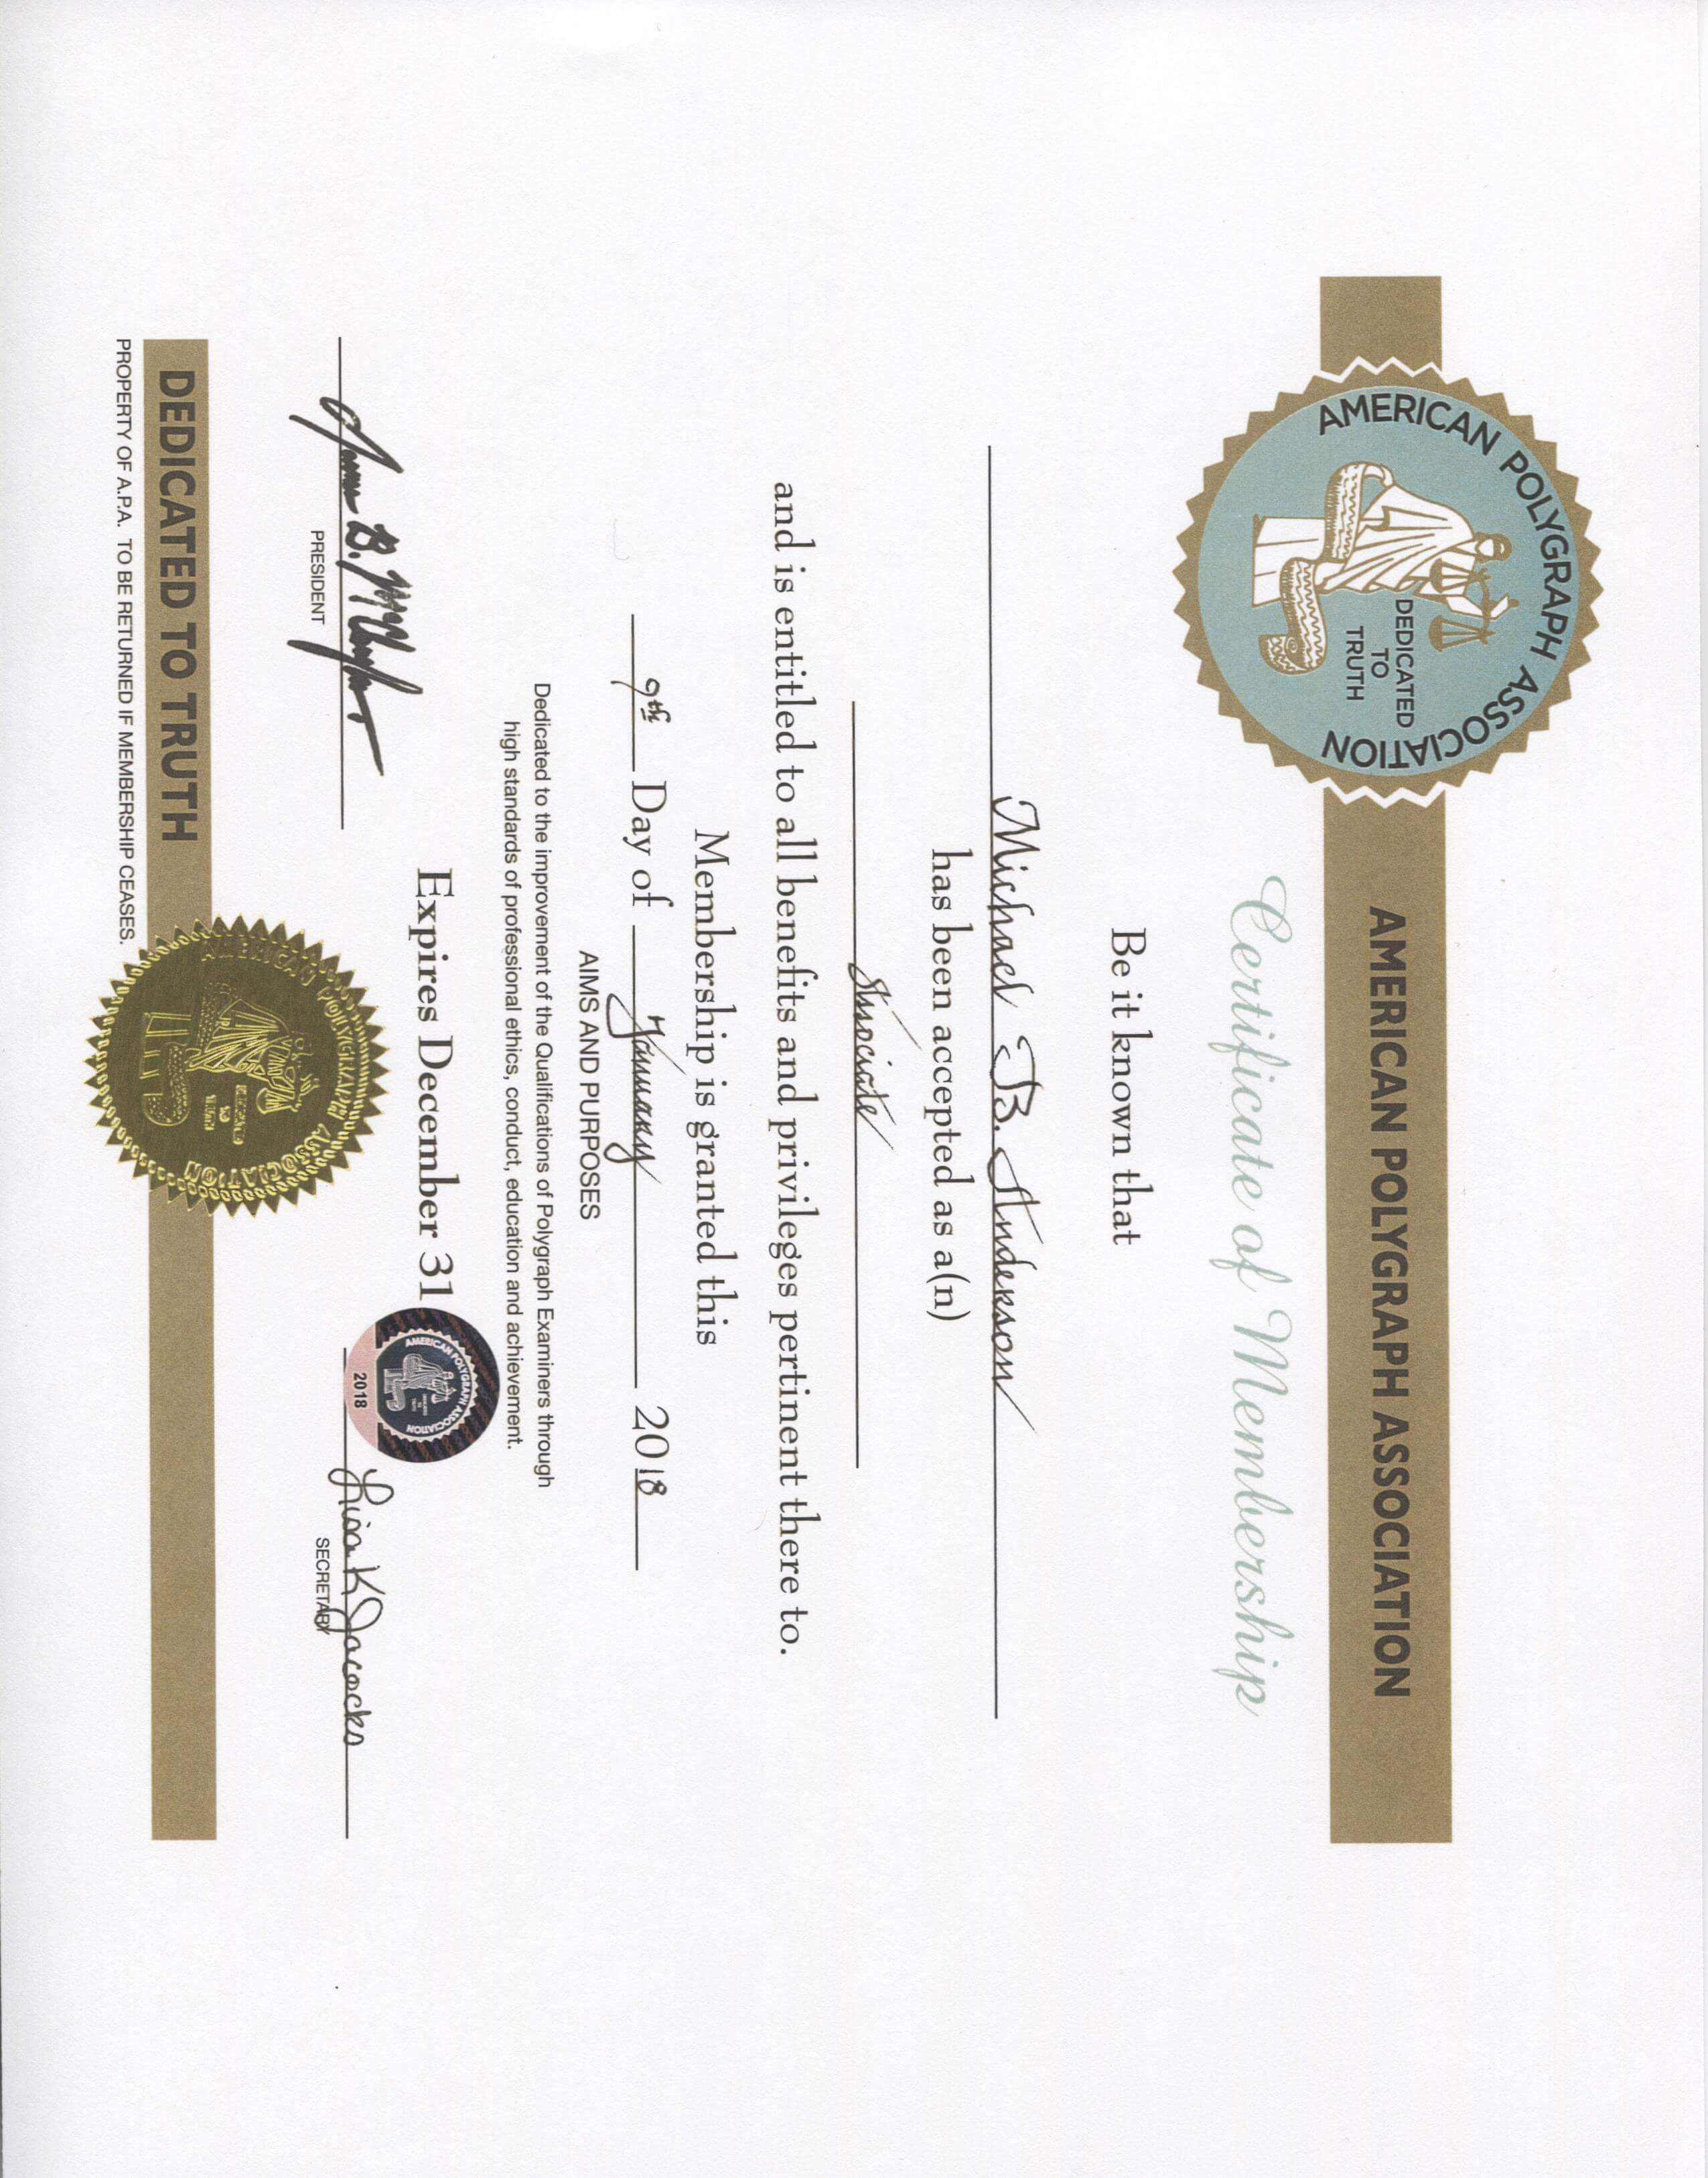 AMERICAN POLYGRAPH ASSOCIATION
DEDICATED
TO
TRUTH
AMERICAN POLYGRAPH ASSOCIATION
Certificate of Membership
Be it known that
Michael B. Anderson
has been accepted as a(n)
Associate
and is entitled to all benefits and privileges pertinent there to.
Membership is granted this
9th Day of January 2018
AIMS AND PURPOSES
Dedicated to the improvement of the Qualifications of Polygraph Examiners through
high standards of professional ethics, conduct, education and achievement.
Expires December 31
AMERICAN POLYGRAPH ASSOCIATION
DEDICATED
TO
TRUTH
2018
B. Lisa K Jacocks
PRESIDENT SECRETARY
AMERICAN POLYGRAPH ASSOCIATION
DEDICATED
TO
TRUTH
DEDICATED TO TRUTH
PROPERTY OF A.P.A. TO BE RETURNED IF MEMBERSHIP CEASES.